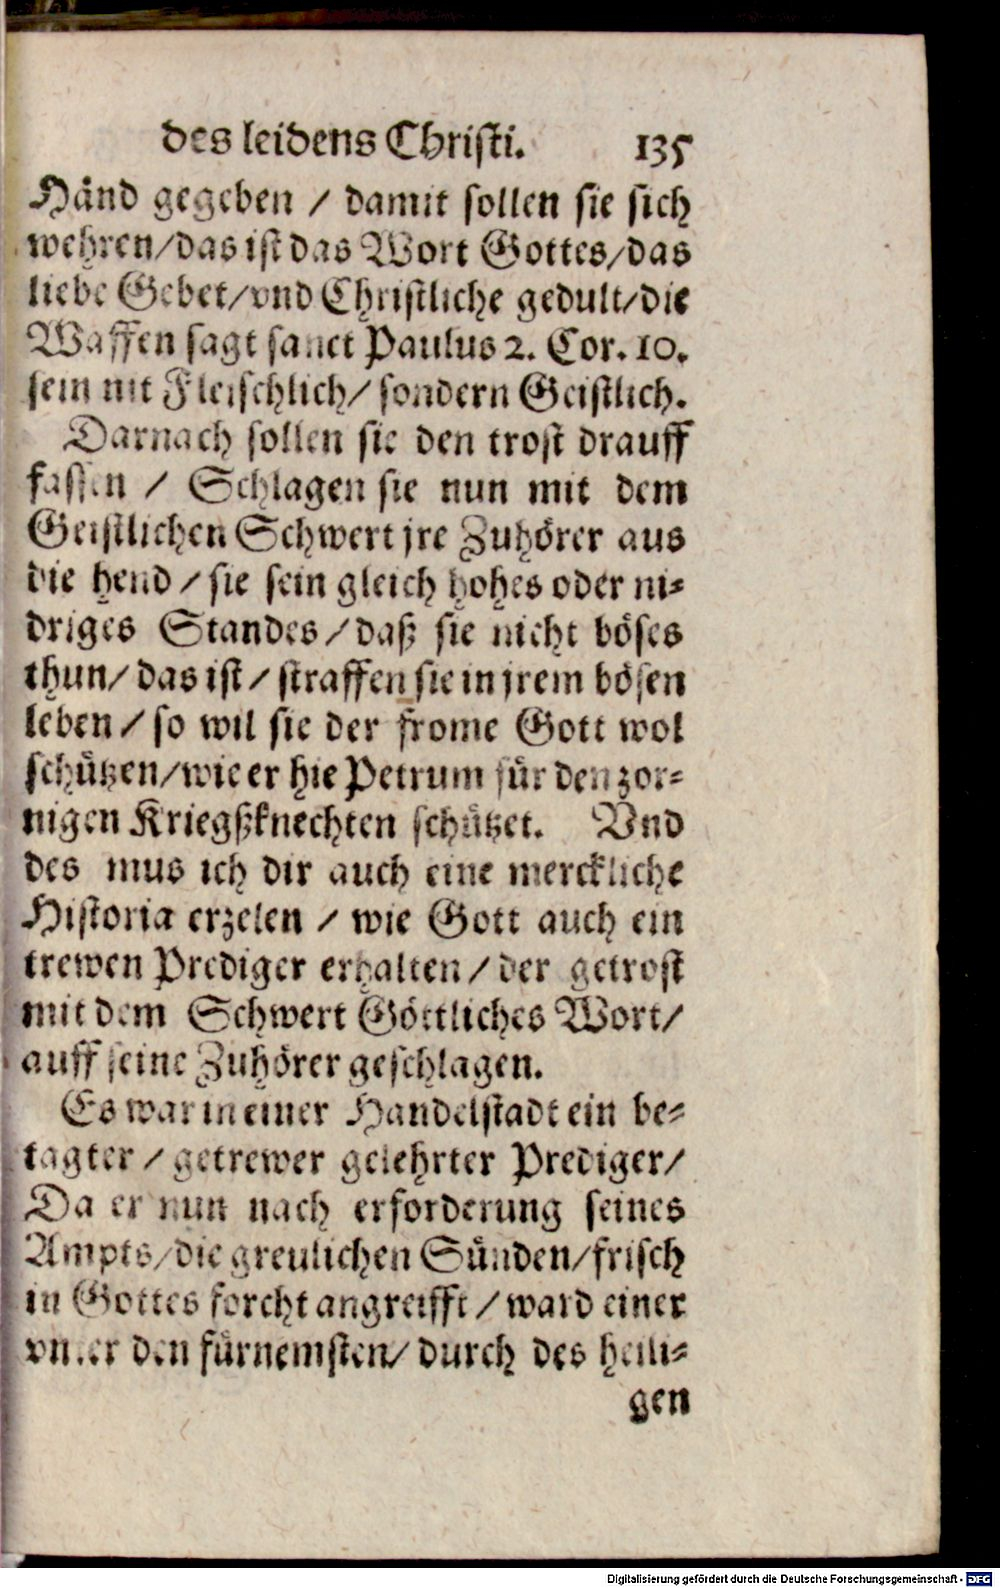 des leidens Christi. 135
Händ gegeben / damit sollen sie sich
wehren/das ist das Wort Gottes/das
liebe Gebet/vnd Christliche gedult/die
Waffen sagt sanct Paulus 2. Cor. 10.
sein nit Fleischlich/ sondern Geistlich.
Darnach sollen sie den trost drauff
fassen / Schlagen sie nun mit dem
Geistlichen Schwert jre Zuhörer aus
die hend / sie sein gleich hohes oder ni-
driges Standes / daß sie nicht böses
thun/ das ist / straffen sie in jrem bösen
leben / so wil sie der frome Gott wol
schützen/wie er hie Petrum für den zor-
nigen Kriegßknechten schützet. Vnd
des mus ich dir auch eine merckliche
Historia erzelen / wie Gott auch ein
trewen Prediger erhalten / der getrost
mit dem Schwert Göttliches Wort/
auff seine Zuhörer geschlagen.
Es war in einer Handelstadt ein be-
tagter / getrewer gelehrter Prediger/
Da er nun nach erforderung seines
Ampts/die greulichen Sünden/frisch
in Gottes forcht angreifft / ward einer
vnter den fürnemsten/ durch des heili-
gen
Digitalisierung gefördert durch die Deutsche Forschungsgemeinschaft - DFG